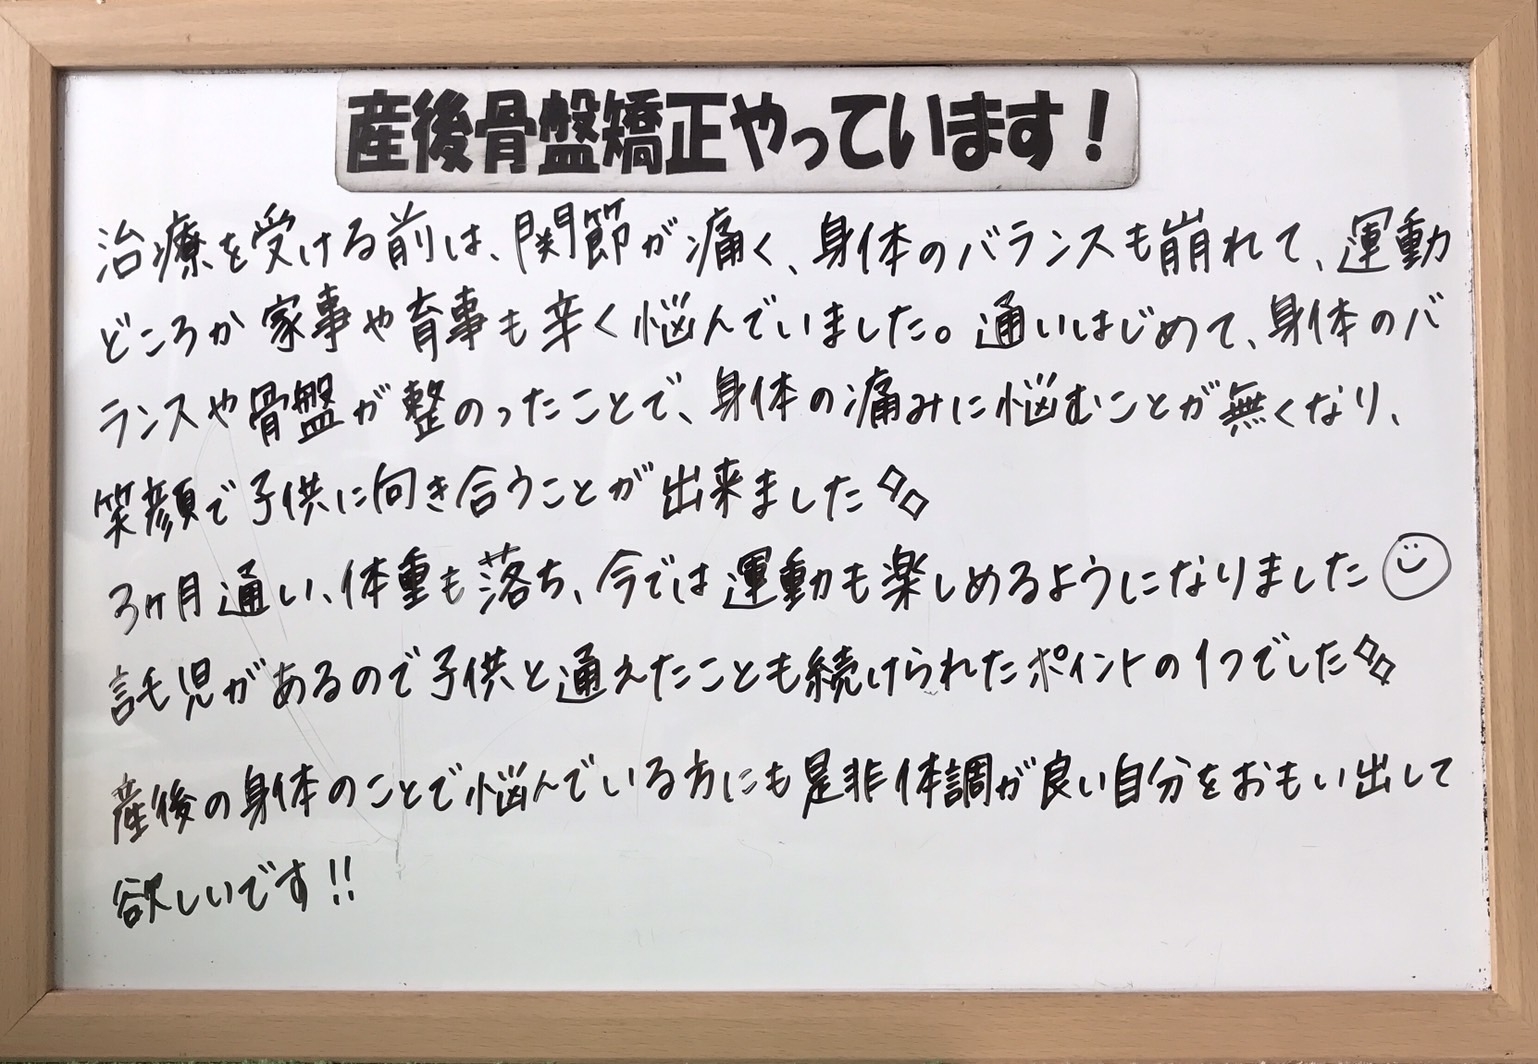 産後骨盤矯正やっています！
治療を受ける前は、関節が痛く、身体のバランスも崩れて、運動
どころか家事や育事も辛く悩んでいました。通いはじめて、身体のバ
ランスや骨盤が整のったことで、身体の痛みに悩むことが無くなり、
笑顔で子供に向き合うことが出来ました
3ヶ月通い、体重も落ち、今では運動も楽しめるようになりました
託児があるので子供と通えたことも続けられたポイントの1つでした
産後の身体のことで悩んでいる方にも是非体調が良い自分をおもい出して
欲しいです!!